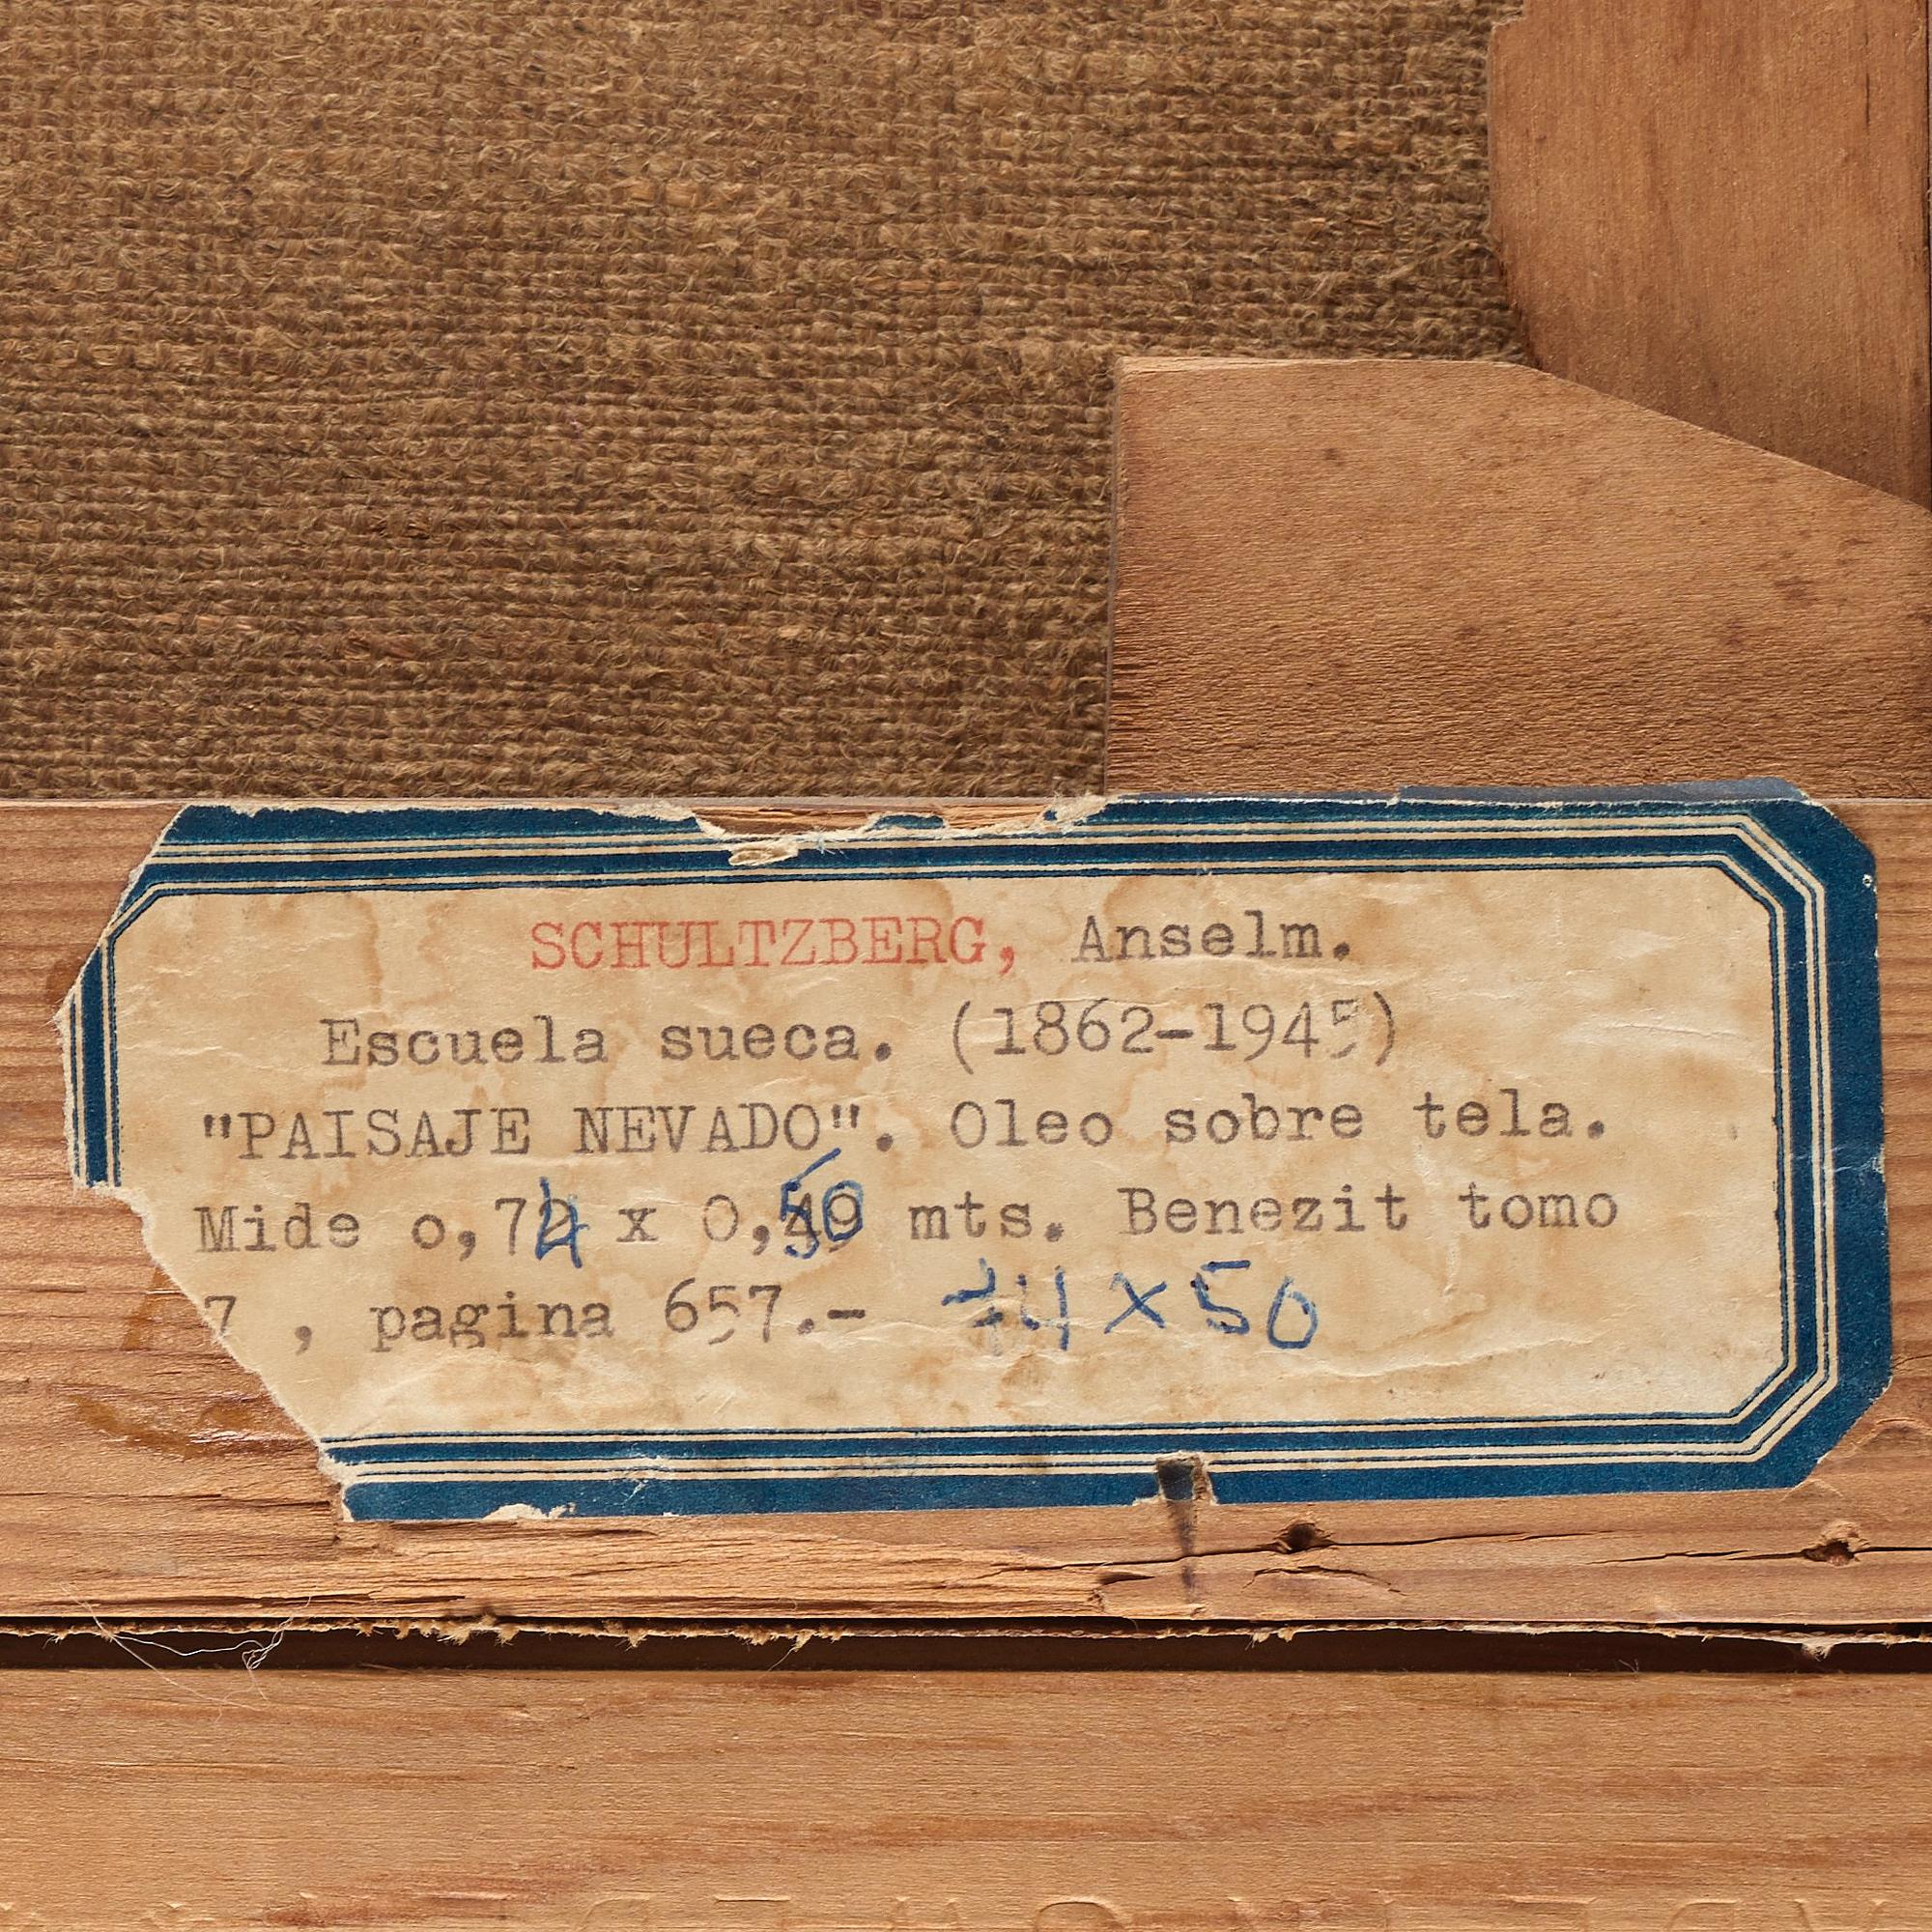 SCHULTZBERG, Anselm.
Escuela sueca. (1862-1945)
"PAISAJE NEVADO". Oleo sobre tela.
Mide o,74 x 0,50 mts. Benezit tomo
7 , pagina 657.- 74 x 50